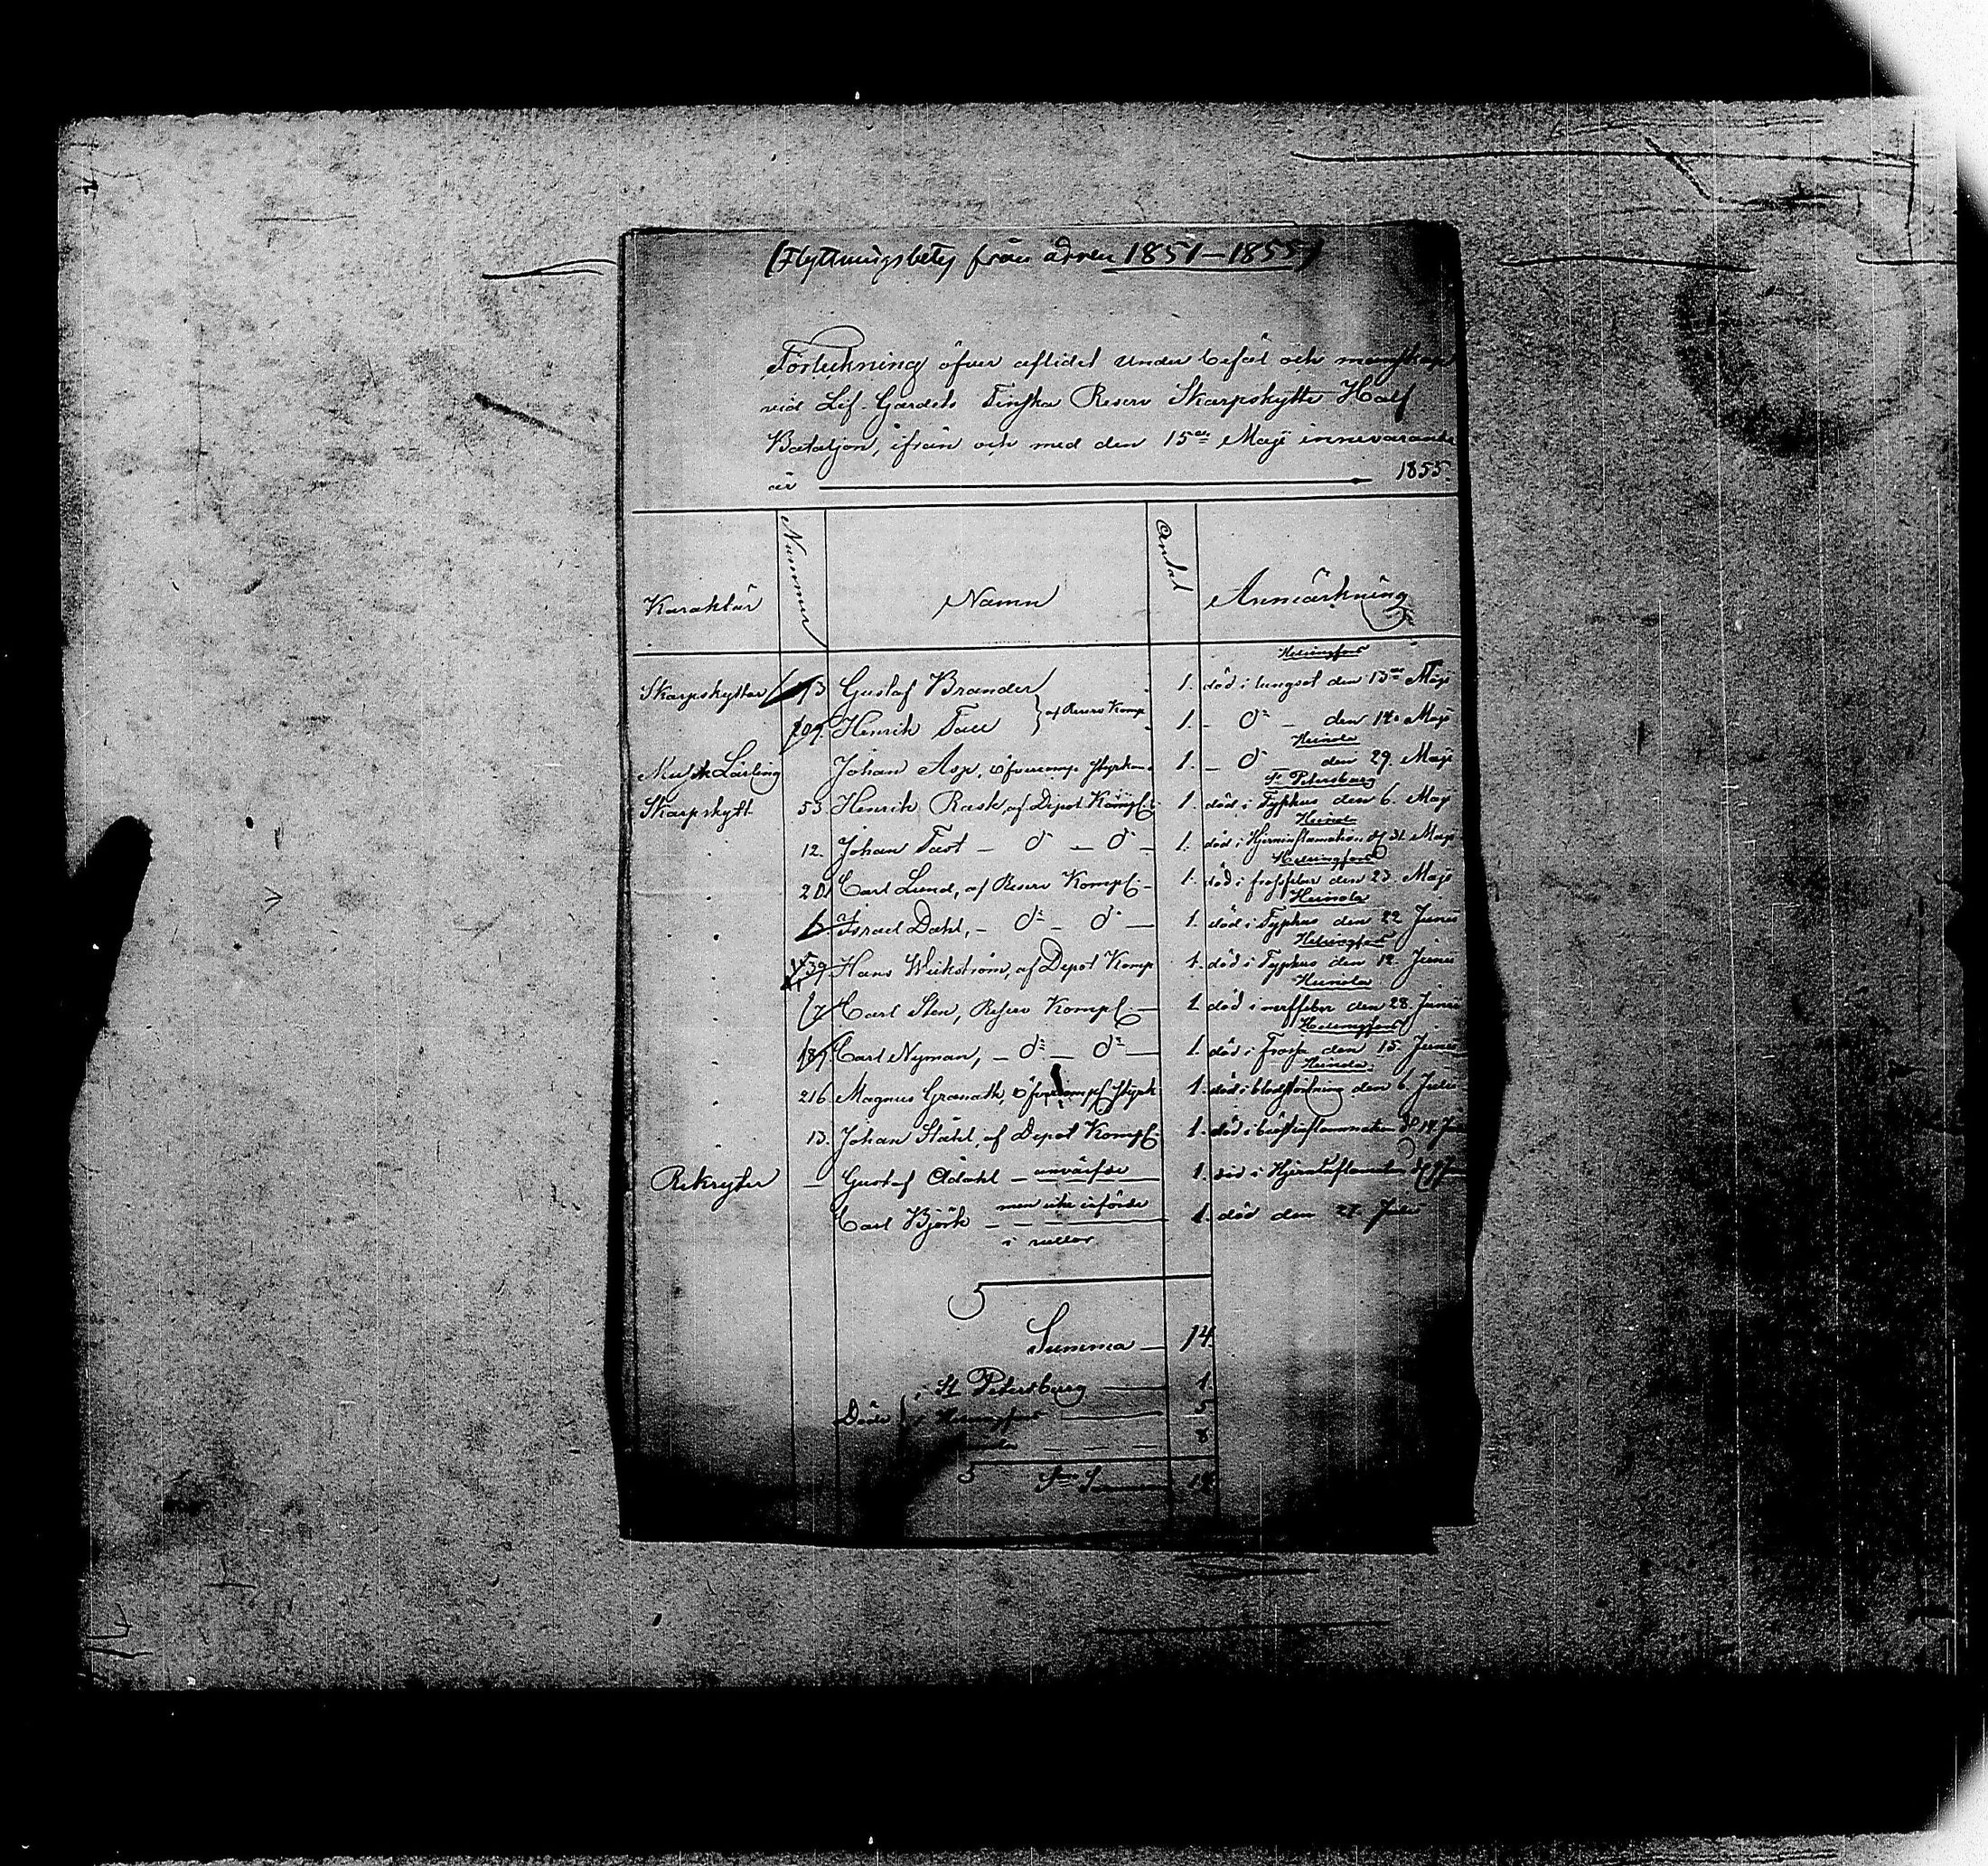 (Flyttningsbetyg från åren 1851–1855)
Förteckning öfver aflidet under befäl och manskap
vid Lif-Gardets Finska Reserv Skarpskytte Half
Bataljon, ifrån och med den 15de Maji innevarande
år 1855.
Karaktär Nummer Namn Antal Anmärkning
Helsingfors
Skarpskyttar Gustaf Brander 1. död i lungsot den 15de Maji
af Reserv Komp
Henrik 1. – do – den Maji
Heinola
Musik Lärling Johan Asp, 1. – do den 29. Maji
St Petersburg
Skarpskytt 53. Henrik Rask, af Depot Komp: 1. död i Typhus den 6. Maji
Heinola
12. Johan Tast – do – do – 1. död i Hjerninflamation d. 31. Maji
Helsingfors
20 Carl Lund, af Reserv Komp: – 1. död i den 23. Maji
Heinola
Israel Dahl, – do – do — 1. död i Typhus den 22 Junii
Helsingfors
39. Hans Wickström, af Depot Komp 1. död i Typhus den 12. Junii
Heinola
7 Carl Sten, Reserv Komp: — 1. död i nerffeber den 28. Junii
Helsingfors
Carl Nyman, – do — do — 1. död i den 15. Junii
Heinola
216 Magnus Granath, 1. död i blodstörtning den 6. Julii
13. Johan Ståhl, af Depot Komp: 1. död i bröstinflammation
Rekryter — Gustaf Ådahl – anvärfde 1. död i Hjerninflamation
men icke införde
Carl Björk – – 1. död den 27. Julii
i rullor.
Summa — 14.
i St Petersburg — 1.
Döde i Helsingfors — 5
Heinola — — — 8
Summa 14